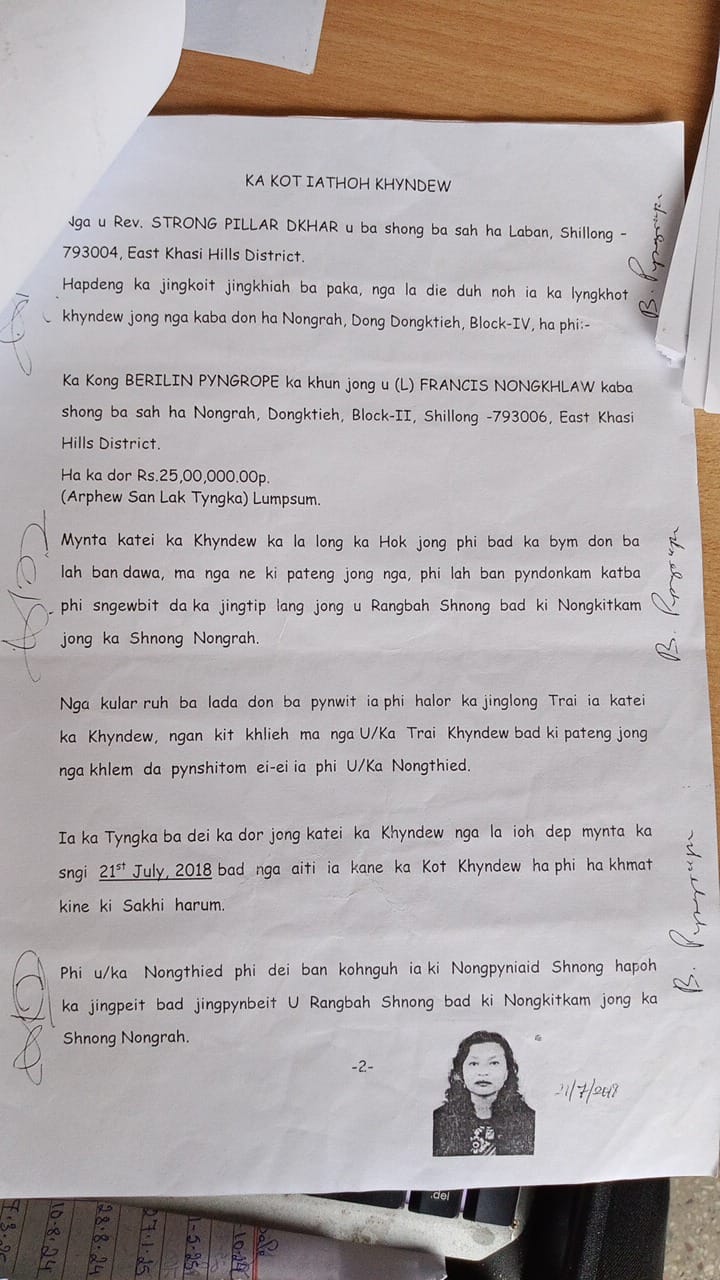 KA KOT IATHOH KHYNDEW
Nga u Rev. STRONG PILLAR DKHAR u ba shong ba sah ha Laban, Shillong -
793004, East Khasi Hills District.
Hapdeng ka jingkoit jingkhiah ba paka, nga la die duh noh ia ka lyngkhot
khyndew jong nga kaba don ha Nongrah, Dong Dongktieh, Block-IV, ha phi:-
Ka Kong BERILIN PYNGROPE ka khun jong u (L) FRANCIS NONGKHLAW kaba
shong ba sah ha Nongrah, Dongktieh, Block-II, Shillong -793006, East Khasi
Hills District.
Ha ka dor Rs.25,00,000.00p.
(Arphew San Lak Tyngka) Lumpsum.
Mynta katei ka Khyndew ka la long ka Hok jong phi bad ka bym don ba
lah ban dawa, ma nga ne ki pateng jong nga, phi lah ban pyndonkam katba
phi sngewbit da ka jingtip lang jong u Rangbah Shnong bad ki Nongkitkam
jong ka Shnong Nongrah.
Nga kular ruh ba lada don ba pynwit ia phi halor ka jinglong Trai ia katei
ka Khyndew, ngan kit khlieh ma nga U/Ka Trai Khyndew bad ki pateng jong
nga khlem da pynshitom ei-ei ia phi U/Ka Nongthied.
Ia ka Tyngka ba dei ka dor jong katei ka Khyndew nga la ioh dep mynta ka
sngi 21st July, 2018 bad nga aiti ia kane ka Kot Khyndew ha phi ha khmat
kine ki Sakhi harum.
Phi u/ka Nongthied phi dei ban kohnguh ia ki Nongpyniaid Shnong hapoh
ka jingpeit bad jingpynbeit U Rangbah Shnong bad ki Nongkitkam jong ka
Shnong Nongrah.
-2-
21/7/2018
B. Pyngrope
B. Pyngrope
B. Pyngrope
.del
10.8.24
28.8.24
27.1.25